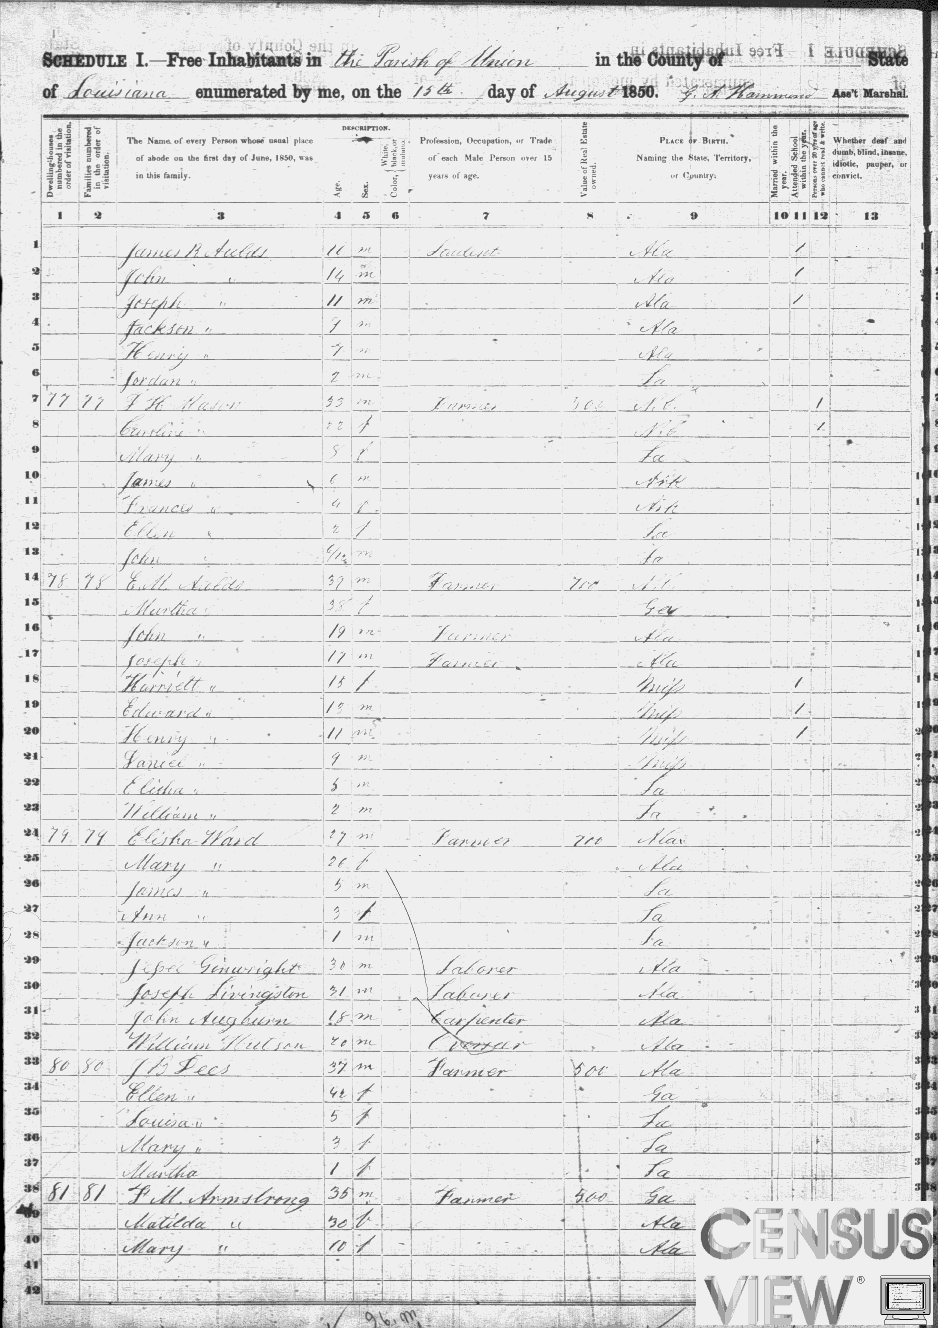 SCHEDULE I.—Free Inhabitants in the Parish of Union in the County of State
of Louisiana enumerated by me, on the 15th day of August 1850. Ass't Marshal.
Dwelling-houses numbered in the order of visitation.
Families numbered in the order of visitation.
The Name of every Person whose usual place of abode on the first day of June, 1850, was in this family.
DESCRIPTION.
Age.
Sex.
Color, White, black, or mulatto.
Profession, Occupation, or Trade of each Male Person over 15 years of age.
Value of Real Estate owned.
PLACE OF BIRTH. Naming the State, Territory, or Country.
Married within the year.
Attended School within the year.
Persons over 20 y'rs of age who cannot read & write.
Whether deaf and dumb, blind, insane, idiotic, pauper, or convict.
1 2 3 4 5 6 7 8 9 10 11 12 13
1 James R Aulds 16 m Student Ala 1
2 John " 14 m Ala 1
3 Joseph " 11 m Ala 1
4 Jackson " 9 m Ala
5 Henry " 7 m Ala
6 Jordan " 2 m La
7 77 77 Mason 33 m Farmer N.C. 1
8 Caroline " 22 f 1
9 Mary " 8 f La
10 James " 6 m Ark
11 Frances " 4 Ark
12 Ellen " 2 f La
13 John m La
14 78 78 E M Aulds 39 m Farmer 700
15 Martha " 38 f Geo
16 John " 19 m Farmer Ala
17 Joseph " 17 m Farmer Ala
18 Harriett " 15 f Miss 1
19 Edward " 13 m Miss 1
20 Henry " 11 m Miss 1
21 Daniel " 9 m Miss
22 Elisha " 5 m La
23 William " 2 m La
24 79 79 Elisha Ward 27 m Farmer 700 Ala
25 Mary " 20 f Ala
26 James " 5 m La
27 Ann " 3 f La
28 Jackson " 1 m La
29 Jesse Ginwright 30 m Laborer Ala
30 Joseph Livingston 31 m Laborer Ala
31 John Aughurn 18 m Carpenter Ala
32 William Hutson 20 m Overseer Ala
33 80 80 J B Dees 37 m Farmer 500 Ala
34 Ellen " 42 f Ga
35 Louisa " 5 f La
36 Mary " 3 f La
37 Martha 1 f La
38 81 81 F M Armstrong 35 m Farmer 500 Ga
39 Matilda " 30 f Ala
40 Mary " 10 f Ala
41
42
96 m
CENSUS
VIEW®